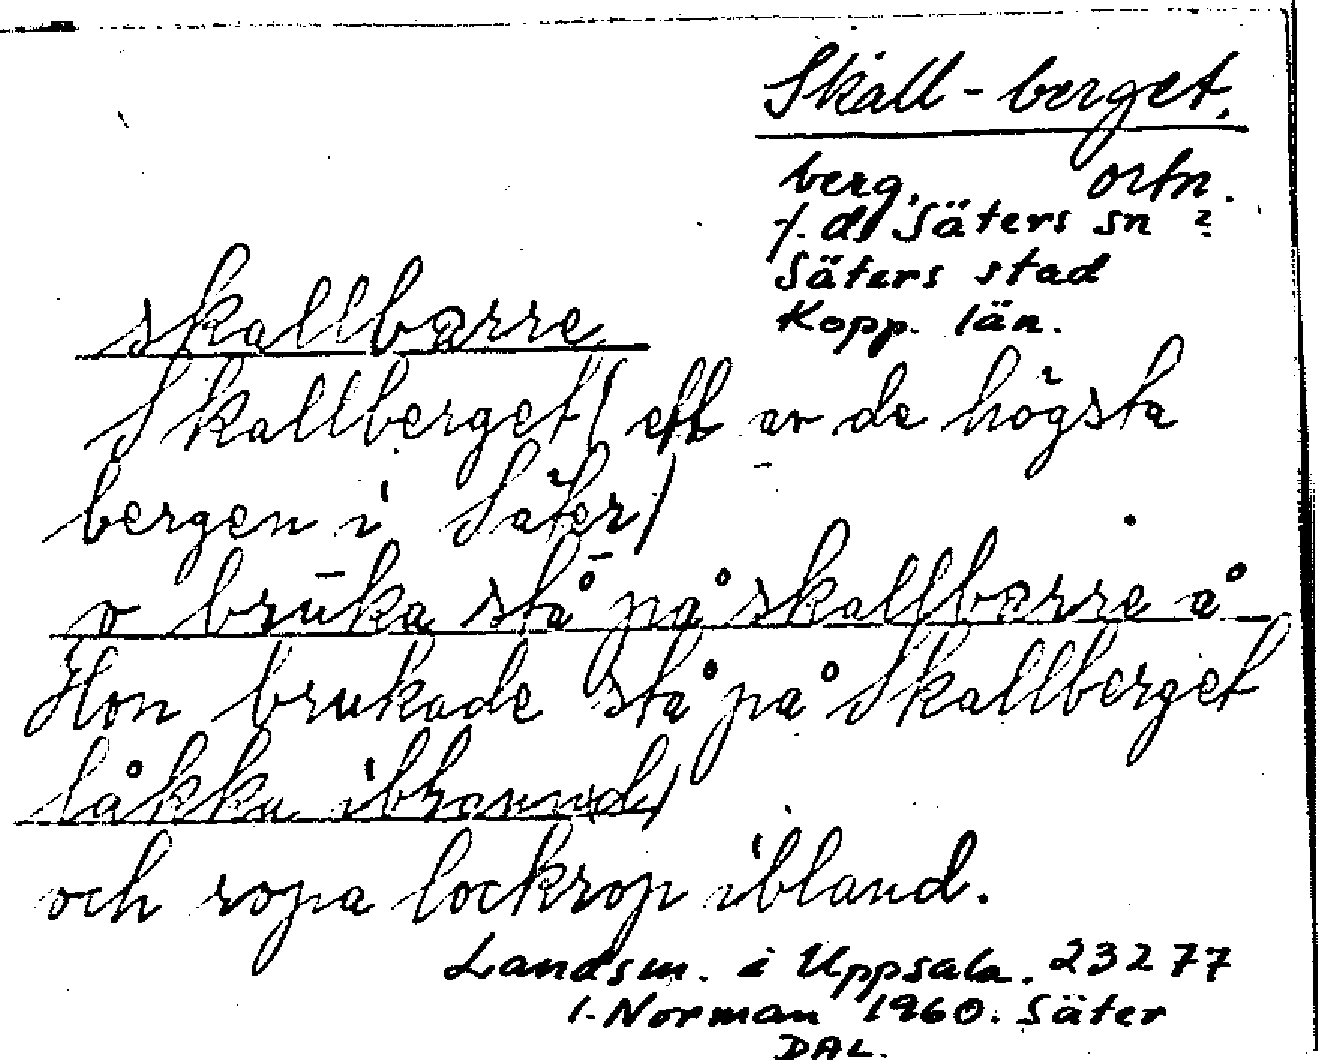 Skall-berget.
berg. ortn.
f.d. Säters sn ?
Säters stad
Kopp. län.
skallbærre
Skallberget/ ett av de högsta
bergen i Säter/
o brūka stå på skallbærre å
Hon brukade stå på Skallberget
låkka
och ropa lockrop ibland.
Landsm. i Uppsala. 23277
I. Norman 1960. Säter
DAL.